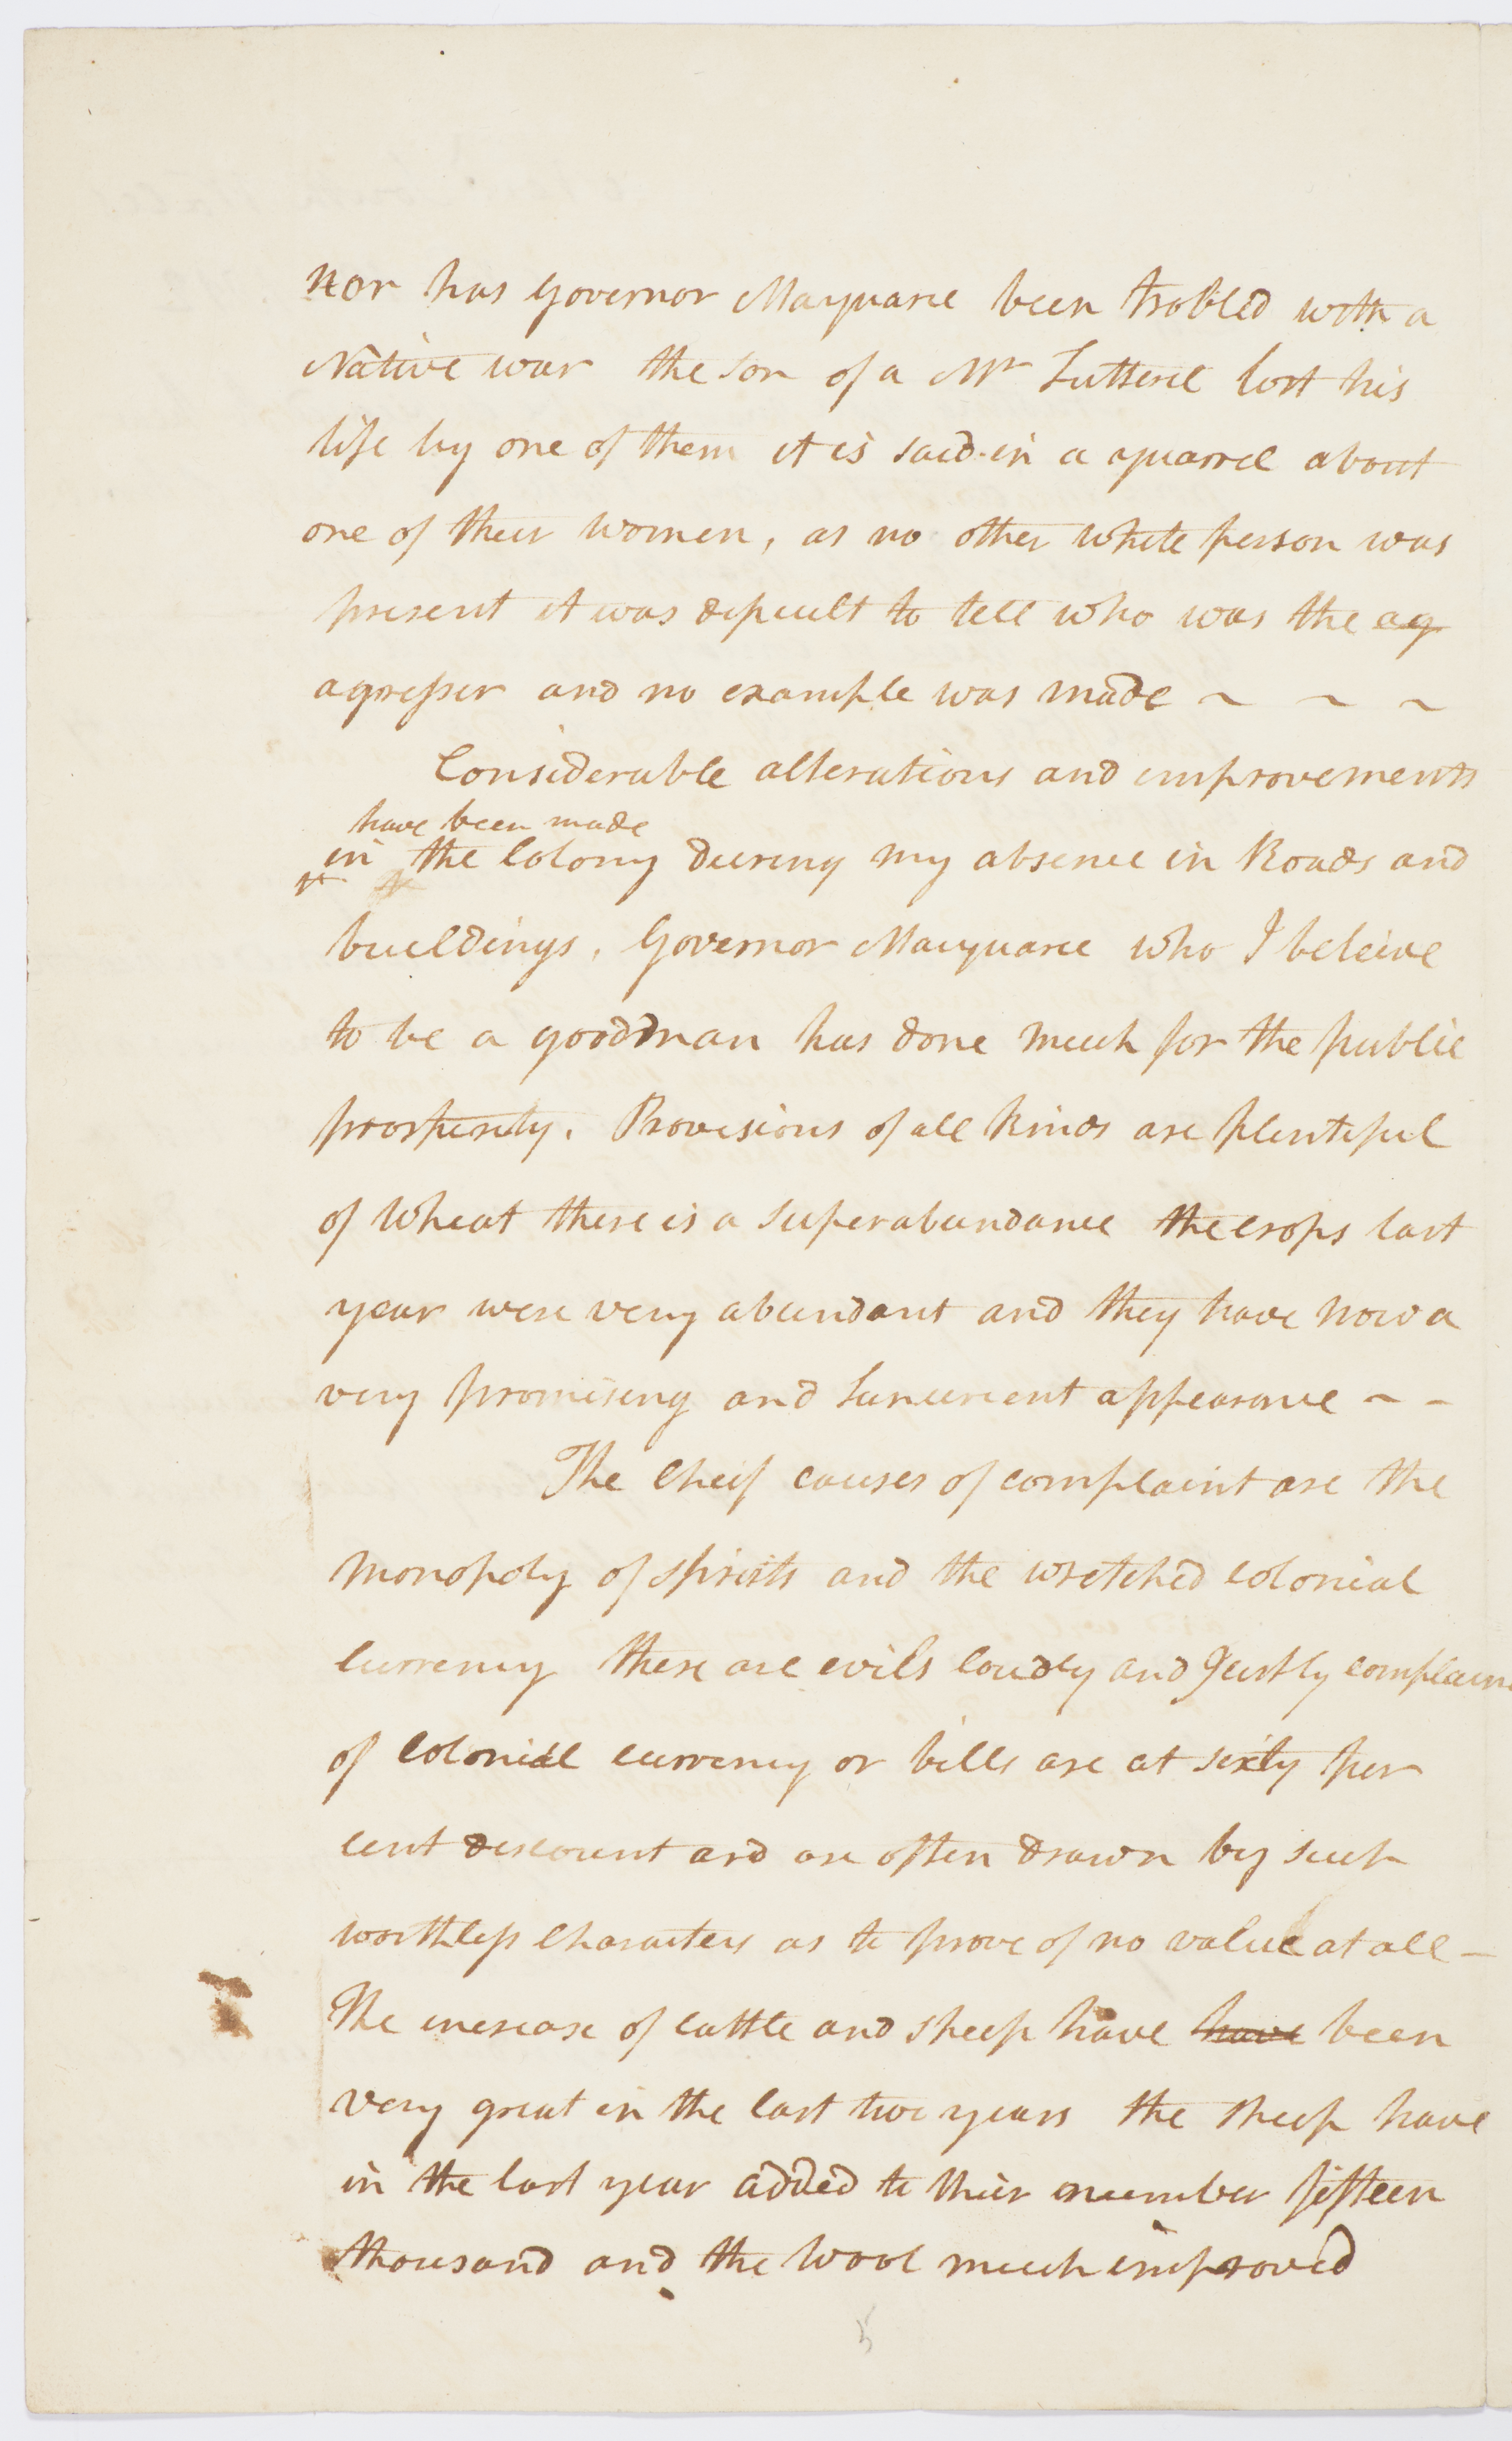 Nor has Governor Macquarie been trobled with a
Native war the son of a Mr Lutterel lost his
life by one of them it is said in a quarrel about
one of their women, as no other white person was
present it was dificult to tell who was the ag
agresser and no example was made ~ ~ ~
Considerable alterations and improvements
have been made
in the Colony during my absence in Roads and
buildings. Governor Macquarie who I beleive
to be a good man has done much for the public
prosperity. Provisions of all kinds are plentiful
of Wheat there is a superabundance the crops last
year were very abundant and they have now a
very promising and luxurient appearance ~ -
The Cheif causes of complaint are the
monopoly of spirits and the wretched colonial
currency these are evils loudly and justly complain
of Colonial currency or bills are at sixty per
cent discount and are often drawn by such
worthless Characters as to prove of no value at all -
The increase of cattle and sheep have have been
very great in the last two years the sheep have
in the last year added to their number fifteen
thousand and the Wool much improved
5